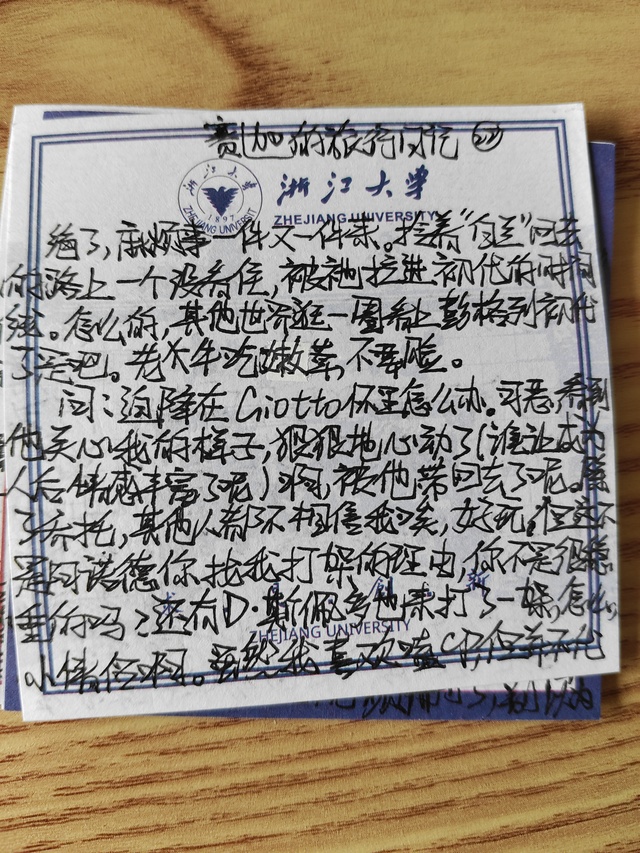 赛加的旅行日记
浙江大学
1897
ZHEJIANG UNIVERSITY
绝了,麻烦事一件又一件来。拎着“白兰”回去
的路上一个没看住,被祂拉进初代的时间
线。怎么的,其他世界逛一圈看上彭格列初代
了是吧。老牛吃嫩草,不要脸。
问:迫降在Giotto怀里怎么办。可恶,看到
他关心我的样子,狠狠地心动了(谁让成为
人后情感丰富了呢)啊,被他带回去了呢。除
了乔托,其他人都不相信我诶,好玩。但这不
是阿诺德你找我打架的理由,你不是很稳
重的吗?还有D·斯佩多也来打了一架,怎么,
情侣啊。虽然我喜欢嗑CP但并不代
ZHEJIANG UNIVERSITY